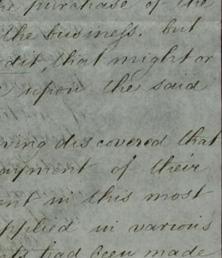 purchase of the
the business. but
dit that might or
upon the said
ving discovered that
ayment of their
ent in this most
pplied in various
ts had been made